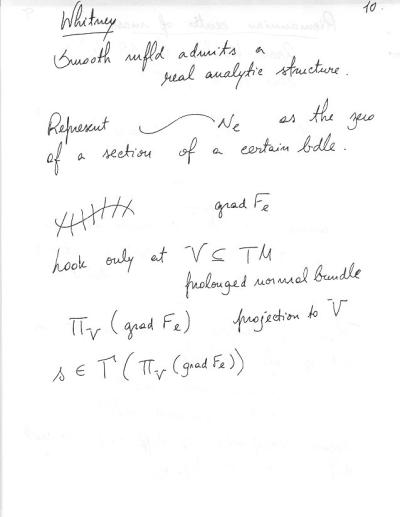 10.
Whitney
Smooth mfld admits a
real analytic structure.
Represent Ne as the zero
of a section of a certain bdle.
grad Fe
look only at V ⊆ TM
prolonged normal bundle
Π_V (grad Fe) projection to V
s ∈ Γ(Π_V(grad Fe))